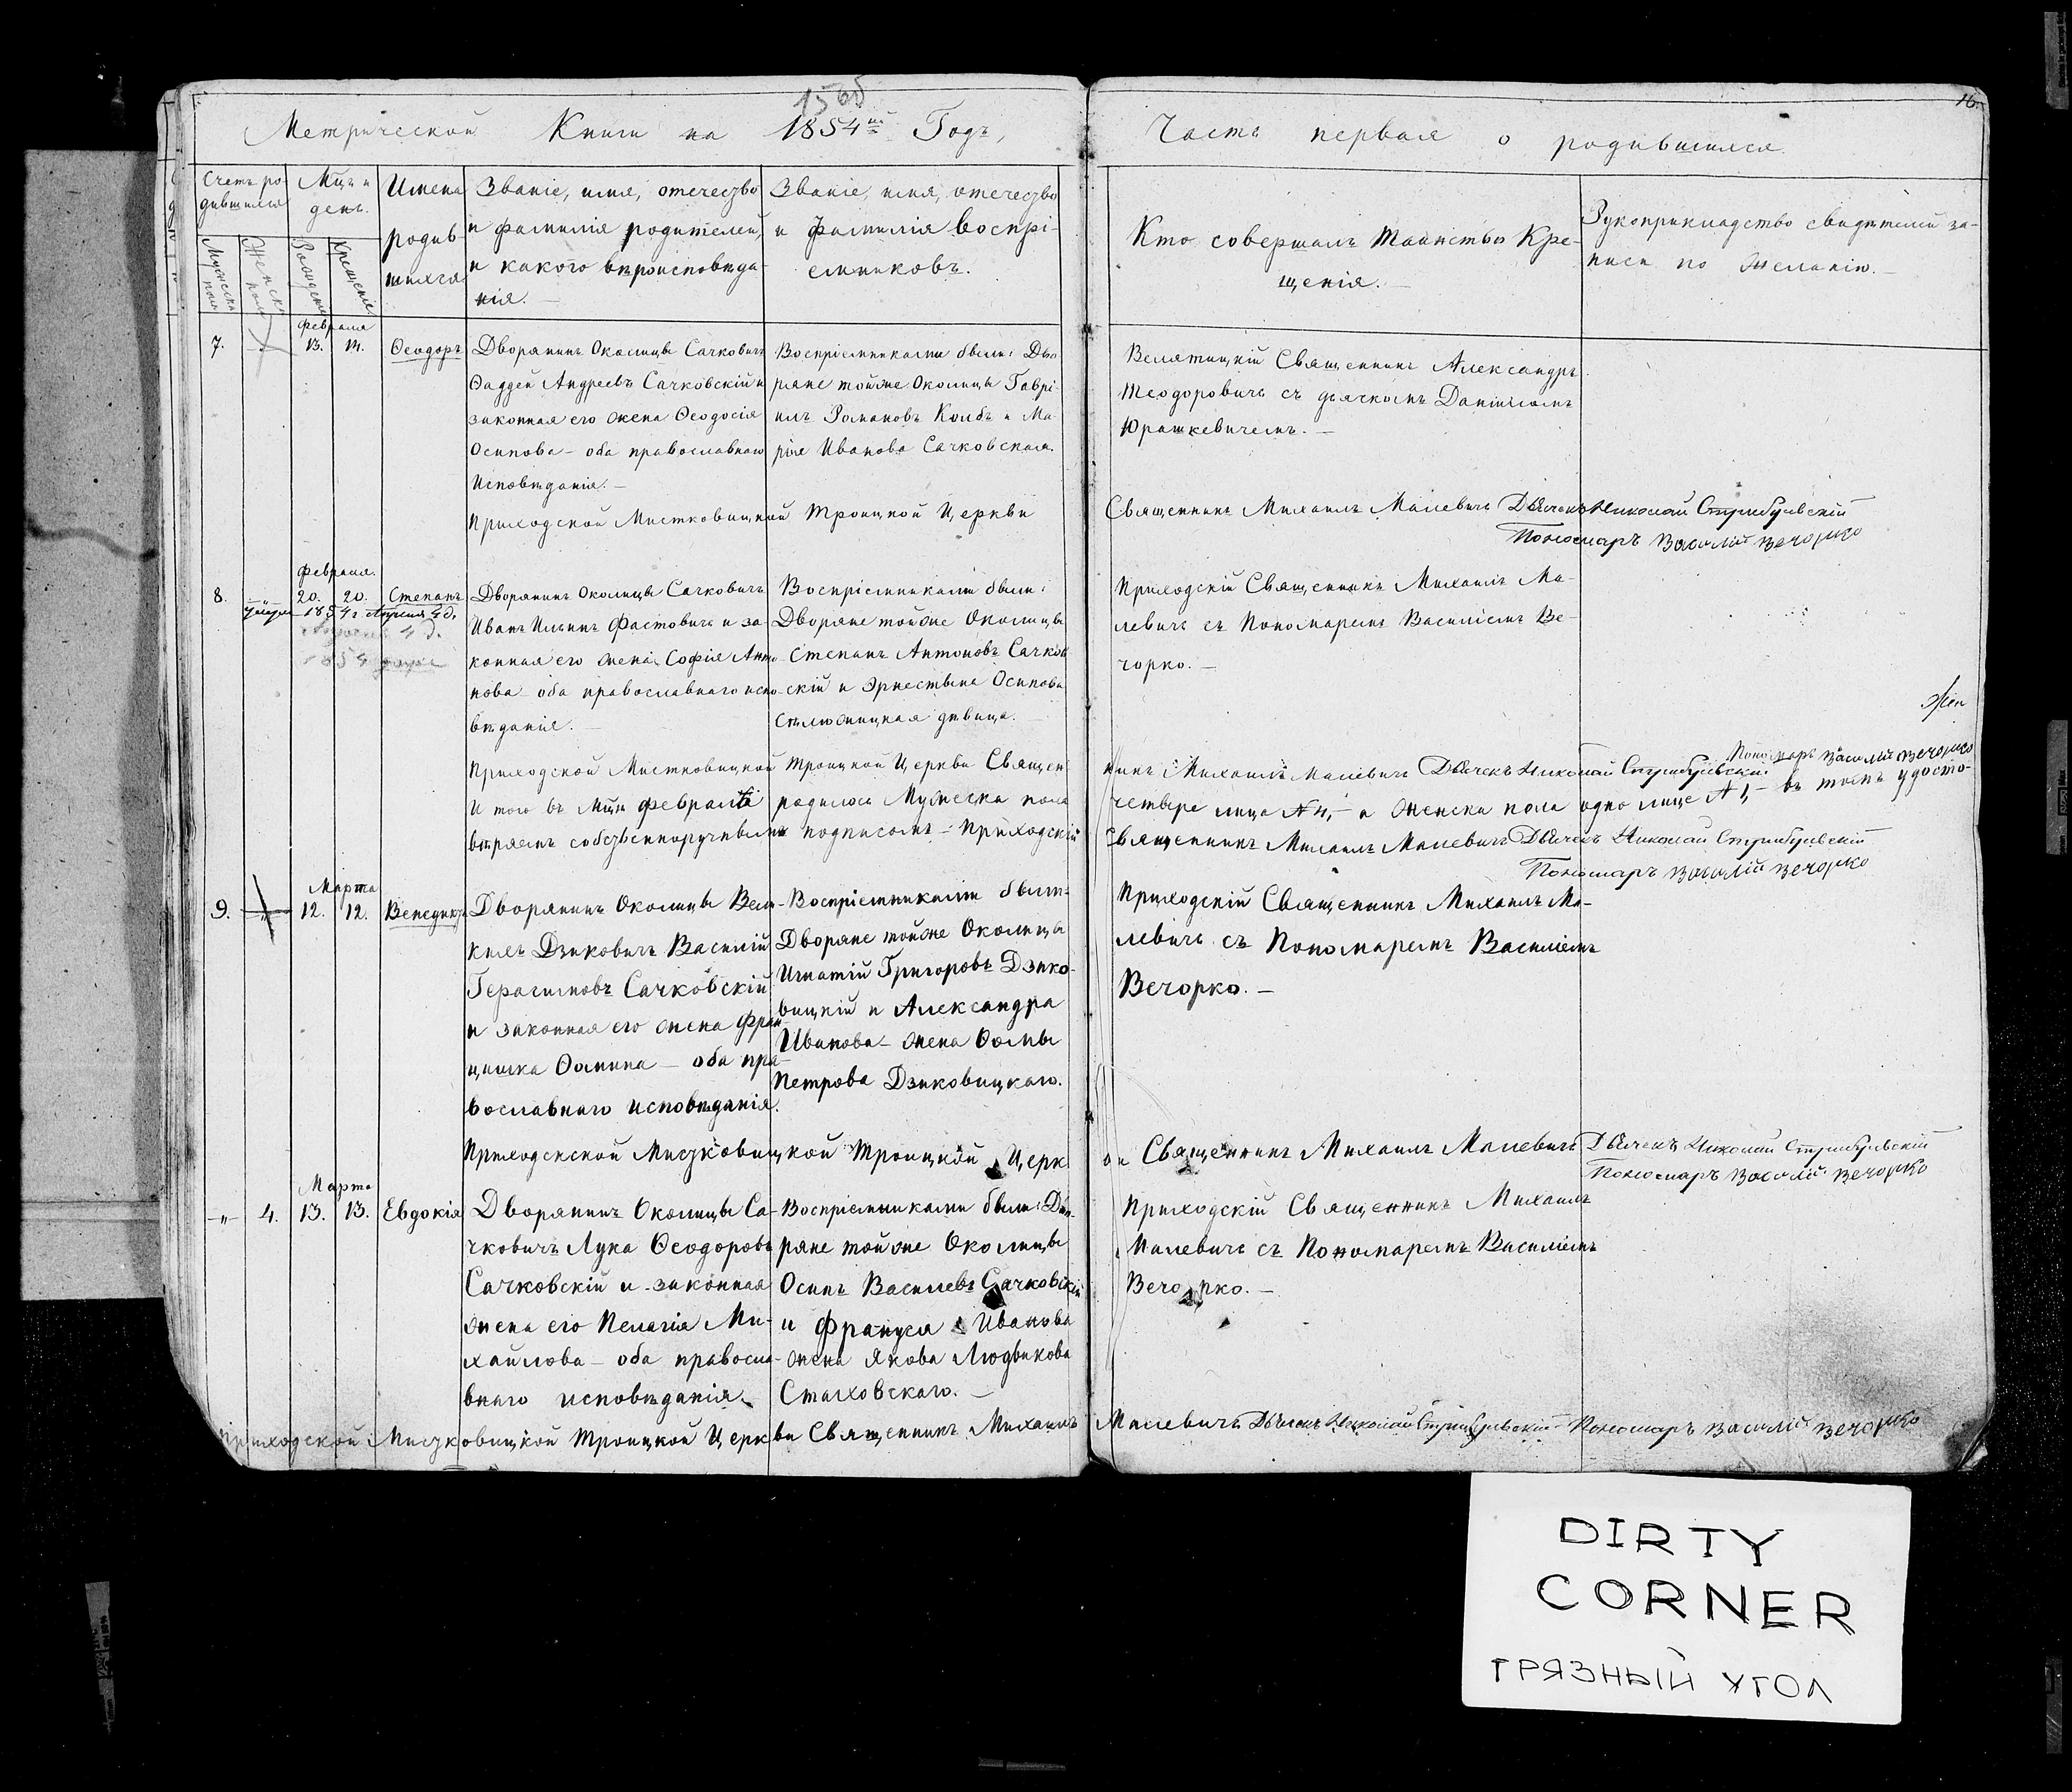 1560
Метрической Книги на 1854ый Годъ,
Часть первая о родившихся
16.
Счетъ ро-
дившихся
Мужеска
пола
Женска
пола
Мцъ и
день.
Рожденія
Крещенія
Имена
родив-
шихся
Званіе, имя, отечество
и фамилія родителей,
и какого вѣроисповѣда-
нія. —
Званіе, имя, отечество
и фамилія воспрі-
емниковъ.
Кто совершалъ таинство Кре-
щенія. —
Рукоприкладство свидѣтелей за-
писи по желанію. —
Февраля
7.
13. 14.
Ѳеодоръ
Дворянинъ Околицы Сачковичъ
Фаддей Андреевъ Сачковскій и
законная его жена Ѳеодосія
Осипова — оба православнаго
Исповѣданія. —
Воспріемниками были: Дво
ряне тойже Околицы Гаврі-
илъ Романовъ Колбъ и Ма-
рія Иванова Сачковская.
Велятицкій Священникъ Александръ
Теодоровичъ съ дьячкомъ Даніиломъ
Юрашкевичемъ. —
Приходской Мистковицкой Троицкой Церкви Священникъ Михаилъ Малевичъ Дьячекъ Николай Стрибульскій
Пономаръ Василій Вечорко
Февраля.
8.
20. 20.
Степанъ
умеръ 1854 г Апреля 4 д.
4 д.
1854
Дворянинъ Околицы Сачковичъ
Иванъ Ильинъ Фастовичъ и за-
конная его жена София Анто-
нова — оба православнаго испо-
вѣданія. —
Воспріемниками были:
Дворяне тойже Околицы
Степанъ Антоновъ Сачков
скій и Эрнестына Осипова
Стлюжицкая дѣвица. —
Приходскій Священникъ Михаилъ Ма-
левичъ съ Пономаремъ Василіемъ Ве-
чорко. —
Приходской Мистковицкой Троицкой Церкви Священ
никъ Михаилъ Малевичъ Дьячекъ Николай Стрибульскій
Пономаръ Василій Вечорко
И того въ Мцѣ Февралѣ родилось Мужеска пола четыре лица № 4, — а женска пола одно лице № 1, — въ томъ удосто-
вѣряемъ собственноручнымъ подписомъ — Приходскій Священникъ Михаилъ Малевичъ Дьячекъ Николай Стрибульскій
Пономаръ Василій Вечорко
Марта
9.
12. 12.
Венедиктъ
Дворянинъ Околицы Вели-
кихъ Дзиковичъ Василій
Герасимовъ Сачковскій
и законная его жена Фран
цишка Фомина — оба пра-
вославнаго исповѣданія.
Воспріемниками были:
Дворяне тойже Околицы
Игнатій Григоровъ Дзико-
вицкій и Александра
Иванова — жена Ѳомы
Петрова Дзиковицкаго.
Приходскій Священникъ Михаилъ Ма-
левичъ съ Пономаремъ Василіемъ
Вечорко. —
Приходскской Мистковицкой Троицкой Церк
ви Священникъ Михаилъ Малевичъ Дьячекъ Николай Стрибульскій
Пономаръ Василій Вечорко
Марта
4.
13. 13.
Евдокія
Дворянинъ Околицы Са-
чковичъ Лука Ѳеодоровъ
Сачковскій и законная
жена его Пелагія Ми-
хайлова — оба правосла-
внаго исповѣданія. —
Воспріемниками были: Дво-
ряне тойже Околицы
Осипъ Василевъ Сачковскій
и Францея Иванова
жена Якова Людвикова
Стаховскаго. —
Приходскій Священникъ Михаилъ
Малевичъ съ Пономаремъ Василіемъ
Вечорко. —
Приходской Мистковицкой Троицкой Церкви Священникъ Михаилъ Малевичъ Дьячекъ Николай Стрибульскій Пономаръ Василій Вечорко
DIRTY
CORNER
ГРЯЗНЫЙ УГОЛ